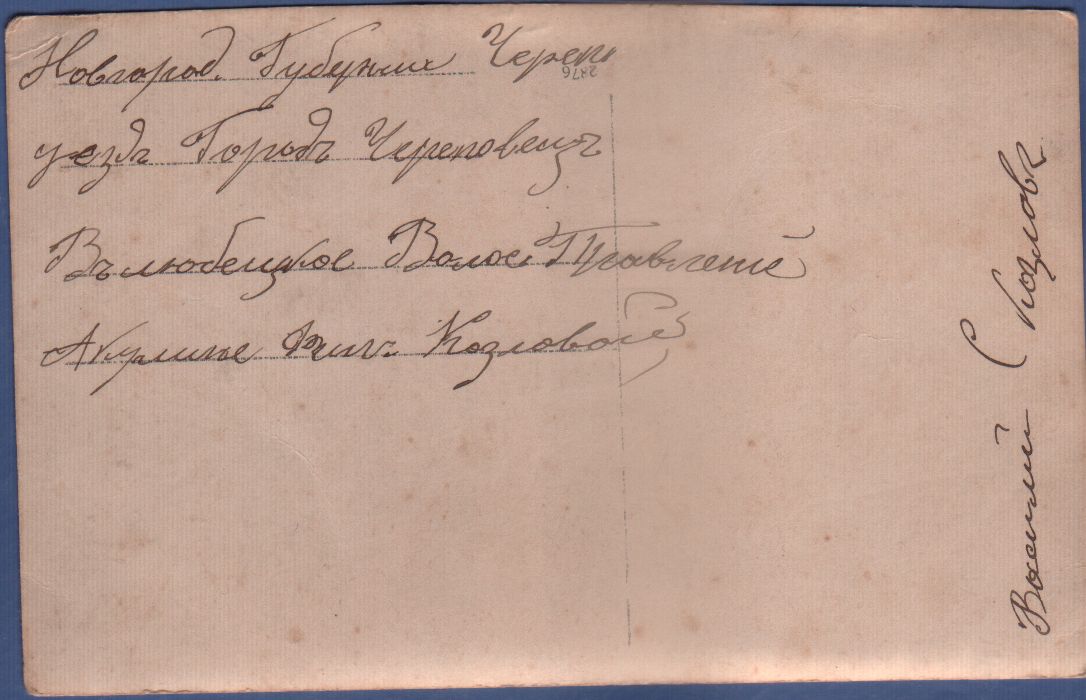 Новгород. Губернии Череп
2876
уездъ Городъ Череповецъ
Въ любецкое Волос. Правлений
Акулине Козловой
Василий С Козловъ